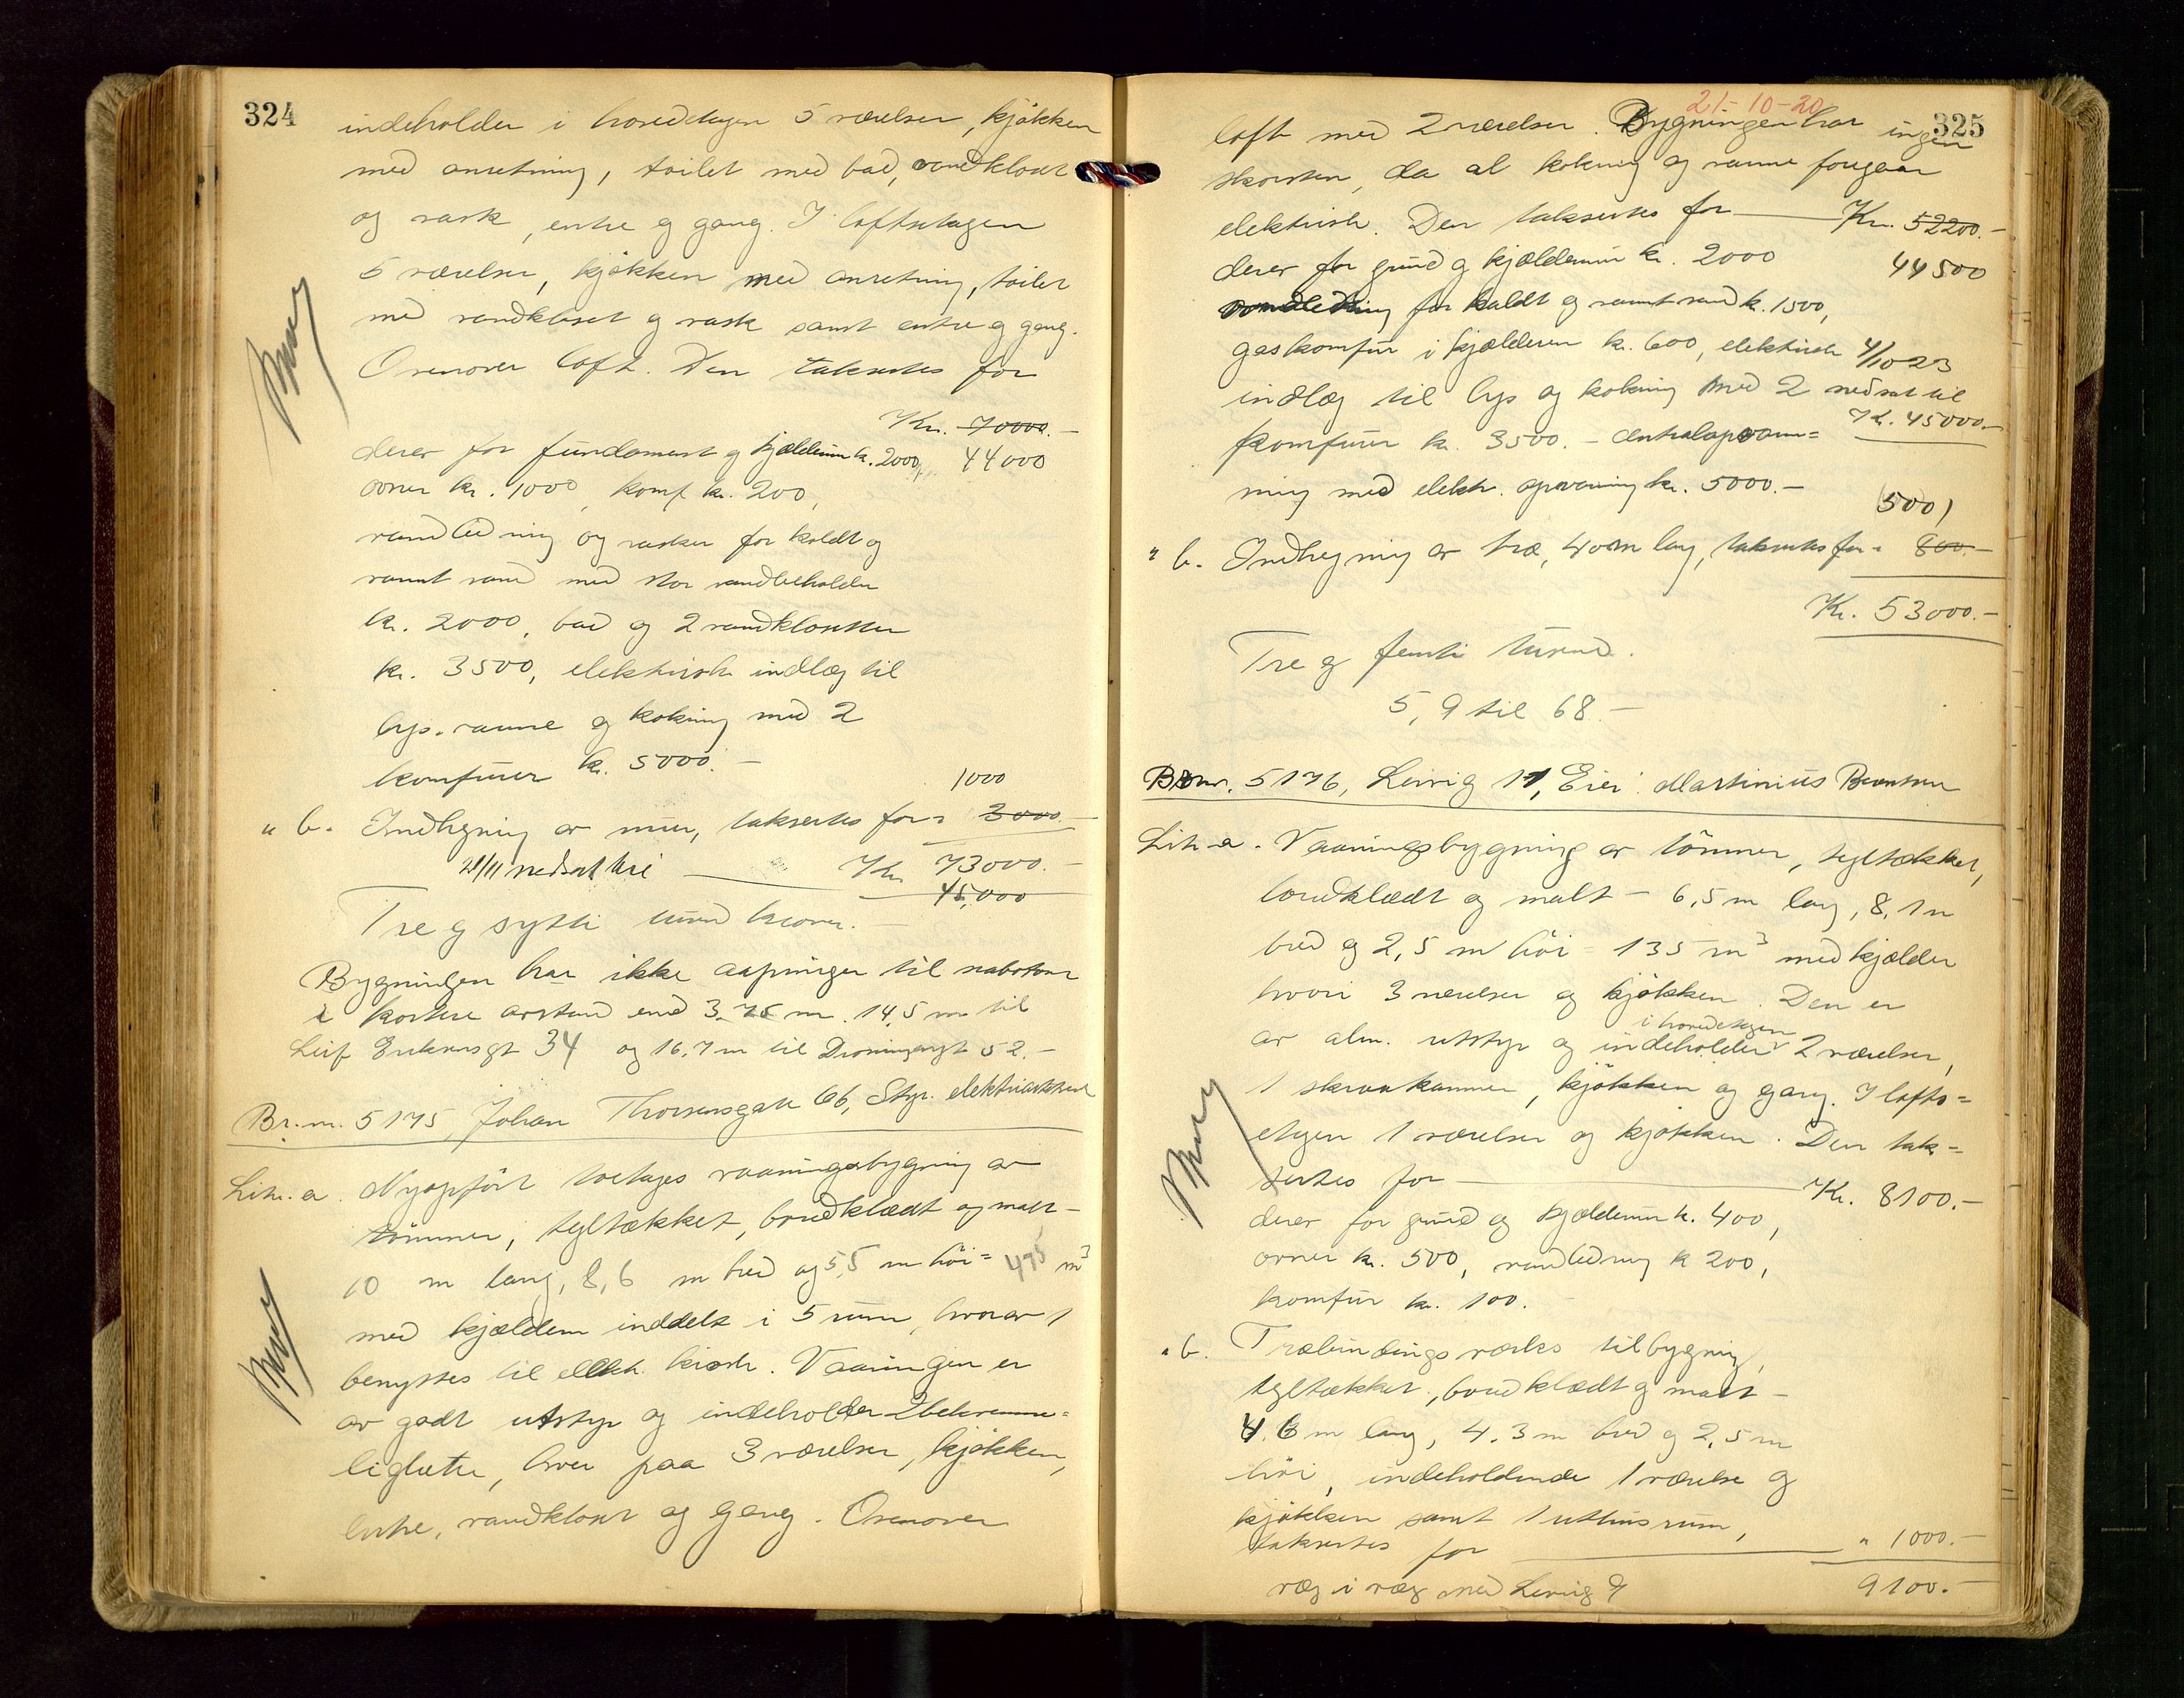 324
indeholder i hovedetagen 5 værelser, kjøkken
med anretning, toilet med bad, vandkloset
og vask, entre og gang. I loftsetagen
5 værelser, kjøkken med anretning, toilet
med vandkloset og vask samt entre og gang.
Ovenover loft. Den taksertes for
Kr. 70000.-
derav for fundament og kjælderrum kr. 2000, 44000
ovner kr. 1000, komf kr. 200,
vandledning og vasker for koldt og
varmt vand med stor vandbeholder
kr. 2000, bad og 2 vandklosetter
kr. 3500, elektrisk indlæg til
lys, varme og kokning med 2
komfurer kr. 5000.-
1000
" b. Indhegning av mur, taksertes for " 3000.-
21/11 nedsat til Kr. 73000.-
45,000
Tre og sytti tusend kroner.-
Bygningen har ikke aapninger til nabotomt
i kortere avstand end 3,75 m. 14,5 m til
Leif Eriksensgt 34 og 16,7 m til Dronningensgt 52.-
Br.nr. 5175, Johan Thorsensgate 66, Styr. elektricitetsverk
Litr. a. Nyopført toetages vaaningsbygning av
tømmer, tegltækket, bordklædt og malt -
10 m lang, 8,6 m bred og 5,5 m høi = 475 m3
med kjældere inddelt i 5 rum, hvorav 1
benyttes til elektr. kiosk. Vaaningen er
av godt utstyr og indeholder 2 bekvemme=
ligheter, hver paa 3 værelser, kjøkken,
entre, vandkloset og gang. Ovenover
21-10-20
325
loft med 2 værelser. Bygningen har ingen
skorsten, da al kokning og varme foregaar
elektrisk. Den taksertes for Kr. 52200.-
derav for grund og kjælderrum kr. 2000 44500
vandledning for koldt og varmt vand kr. 1500,
gaskomfur i kjælderen kr. 600, elektrisk 4/10 23
indlæg til lys og kokning med 2 nedsat til
komfurer kr. 3500.- centralopvarm= Kr. 45000.-
ning med elektr. opvarming kr. 5000.-
500)
" b. Indhegning av træ, 40 m lang, taksertes for " 800.-
Kr. 53000.-
Tre og femti tusend.
5,9 til 68.-
Br.nr. 5176, Lervig 11, Eier: Martinius Berentsen
Litr. a. Vaaningsbygning av tømmer, tegltækket,
bordklædt og malt - 6,5 m lang, 8,1 m
bred og 2,5 m høi = 135 m3 med kjælder
hvori 3 værelser og kjøkken. Den er
av alm. utstyr og indeholder i hovedetagen 2 værelser,
1 skraakammer, kjøkken og gang. I lofts=
etagen 1 værelser og kjøkken. Den tak=
sertes for Kr. 8100.-
derav for grund og kjælderrum kr. 400,
ovner kr. 500, vandledning kr 200,
komfur kr. 100.
" b. Træbindingsverks tilbygning,
tegltækket, bordklædt og malt -
4,6 m lang, 4,3 m bred og 2,5 m
høi, indeholdende 1 værelse og
kjøkken samt 1 uthusrum,
taksertes for " 1000.-
væg i væg med Lervig 9 9100.-